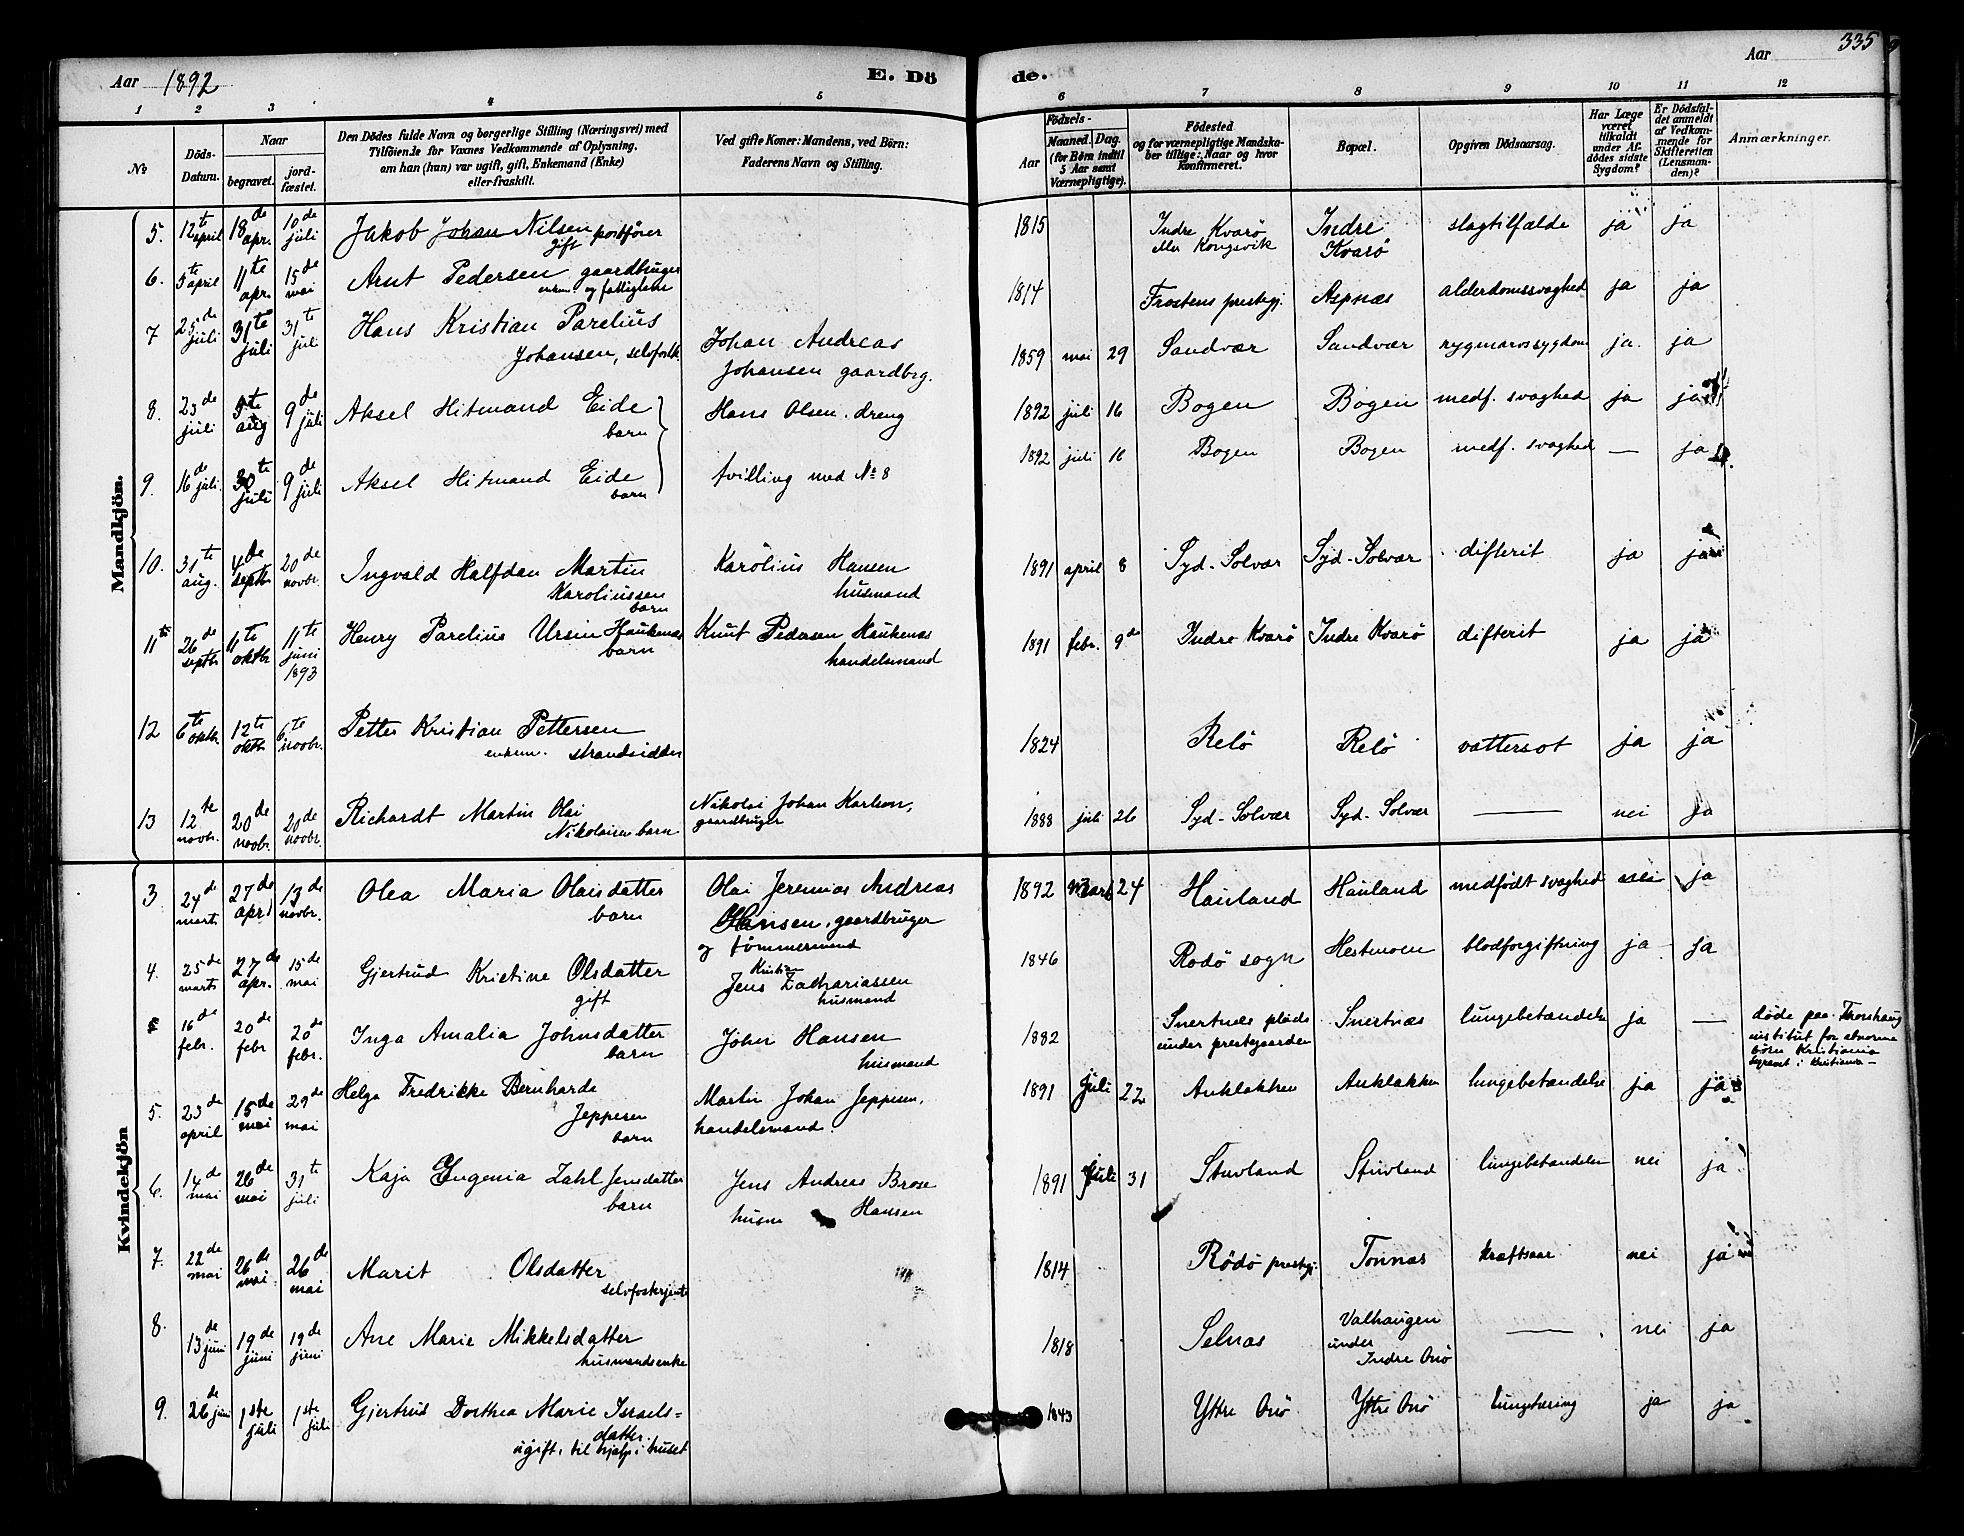 Aar 1892
E. Dö
de.
Aar
335
1 2 3 4 5 6 7 8 9 10 11 12
№
Döds-Datum.
Naar
begravet.
jord-fæstet.
Den Dödes fulde Navn og borgerlige Stilling (Næringsvei) med
Tilföiende for Voxnes Vedkommende af Oplysning,
om han (hun) var ugift, gift, Enkemand (Enke)
eller fraskilt.
Ved gifte Koner: Mandens, ved Börn:
Faderens Navn og Stilling.
Födsels-
Aar
Maaned. Dag.
(for Börn indtil
5 Aar samt
Værnepligtige).
Födested
og for værnepligtige Mandska-
ber tillige: Naar og hvor
Konfirmeret.
Bopæl.
Opgiven Dödsaarsag.
Har Læge
været
tilkaldt
under Af-
dödes sidste
Sygdom?
Er Dödsfal-
det anmeldt
af Vedkom-
mende for
Skifteretten
(Lensman-
den)?
Anmærkninger.
Mandkjön.
5. 12te april 18de apr. 10de juli Jakob Johan Nilsen postfører gift 1815 Indre Kvarø eller Kongsvik Indre Kvarø slagtilfælde ja ja
6. 5te april 11te apr. 15de mai Arnt Pedersen gaardbruger enkem. og fattiglem 1814 Frostens prestegj. Aspnæs alderdomssvaghed ja ja
7 25de juli 31te juli 31te juli Hans Kristian Parelius
Johansen, selvfostk. Johan Andreas
Johansen gaardbrg. 1859 mai 29 Sandvær Sandvær rygmarvssygdom ja. ja
8. 23de juli 5te aug 9de juli Aksel Hitmand Eide
barn Hans Olsen. dreng 1892 juli 16 Bogen Bogen medf. svaghed ja ja
9. 16de juli. 30te juli 9de juli Aksel Hitmand Eide
barn tvilling med № 8 1892 juli 16 Bogen Bogen medf. svaghed — ja
10. 31te aug. 4de septbr 20de novbr. Ingvald Halfdan Martin
Karoliussen
barn Karolius Hansen
husmand 1891 april 8 Syd-Solvær Syd-Solvær difterit ja ja
11te 26de septbr 11te oktbr 11te juni 1893 Henry Parelius Ursin Haukenæs
barn Knut Pedersen Haukenæs
handelsmand 1891 febr. 9de Indre Kvarø Indre Kvarø difterit ja ja
12 6te oktbr. 12te oktbr 6te novbr. Petter Kristian Pettersen
enkem. strandsidder 1824 Relø Relø vattersot ja ja
13 12te novbr. 20de novbr. 20de novbr. Richardt Martin Olai
Nikolaisen barn Nikolai Johan Karlsen,
gaardbruger 1888 juli 26 Syd-Solvær Syd-Solvær — nei ja
Kvindekjön
3 24de marts 27de april 13de novbr. Olea Maria Olaisdatter
barn Olai Jeremias Andreas
Hansen. gaardbruger
og tømmermand 1892 Marts 24 Hauland Hauland medfødt svaghed nei ja
4. 25de marts 27de apr. 15de mai Gjertrud Kristine Olsdatter
gift Jens Kristian Zachariassen
husmand 1846 Rødø sogn Hestmoen blodforgiftning ja ja
16de febr. 20de febr 20de febr. Inga Amalia Johnsdatter
barn John Hansen
husmand 1882 Snertnæs plads
under prestegaarden Snertnæs lungebetændelse ja — døde paa Thorshaug
institut for abnorme
børn Kristiania
begravet i Kristiania
5. 23de april 15de mai 29de mai Helga Fredrikke Bernharda
Jeppesen
barn Martin Johan Jeppesen,
handelsmand. 1891 Juli 22 Anklakken Anklakken lungebetændelse ja ja
6. 14de mai 26de mai 31te juli Kaja Eugenia Zahl Jensdatter
barn Jens Andreas Brose
husm Hansen 1891 Juli 31 Stuvland Stuvland lungebetændelse nei ja
7. 22de mai 26de mai 26de mai Marit Olsdatter
selvfosterjente 1814 Rödö prestegj. Tonnæs kræftsaar nei ja
8. 13de juni 19de juni 19de juni Ane Marie Mikkelsdatter
husmandsenke 1818 Selnæs Valhaugen
under
Indre Onø — nei ja
9. 26de juni 1ste juli 1ste juli Gjertrud Dorthea Marie Israels=
datter.
ugift, til hjælp i huset 1843 Yttre Onø Yttre Onø lungtæring ja ja